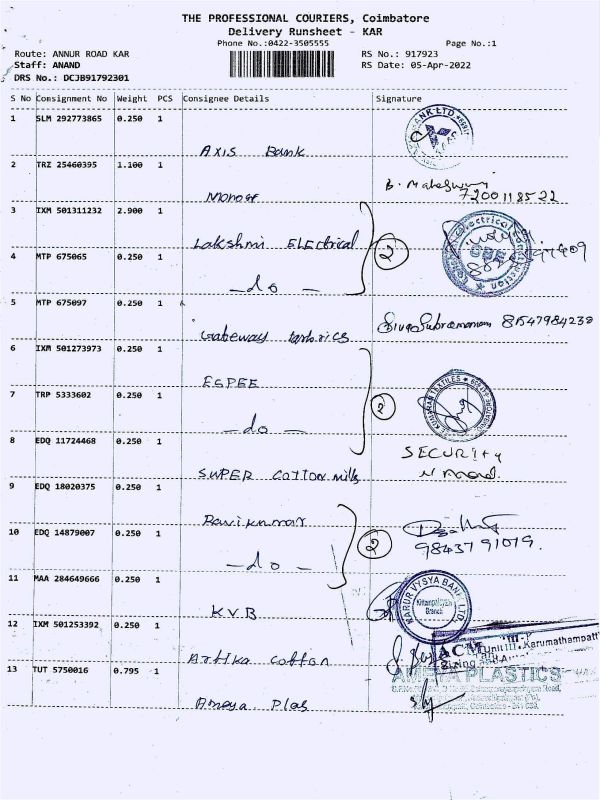 THE PROFESSIONAL COURIERS, Coimbatore
Delivery Runsheet - KAR
Phone No.:0422-3505555 Page No.:1
Route: ANNUR ROAD KAR RS No.: 917923
Staff: ANAND RS Date: 05-Apr-2022
DRS No.: DCJB91792301
S No Consignment No Weight PCS Consignee Details Signature
1 SLM 292773865 0.250 1
Axis Bank
2 TRZ 25460395 1.100 1
B. Maheswari
7200118522
3 IXM 501311232 2.900 1
Lakshmi Electrical
4 MTP 675065 0.250 1
2
— do —
5 MTP 675097 0.250 1
Gateway
SivaSubramaniam 8154798423
6 IXM 501273973 0.250 1
ESPEE
7 TRP 5333602 0.250 1
2
— do —
8 EDQ 11724468 0.250 1
SECURITY
SUPER COTTON mills
9 EDQ 18020375 0.250 1
Ravikumar
10 EDQ 14879007 0.250 1
2
98437 91079.
— do —
11 MAA 284649666 0.250 1
KVB
KARUR VYSYA BANK LTD.
Branch
12 IXM 501253392 0.250 1
Arthka cotton
ACM
Unit III, Karumathampatti
13 TUT 5750016 0.795 1
AMEYA PLASTICS
Ameya Plas